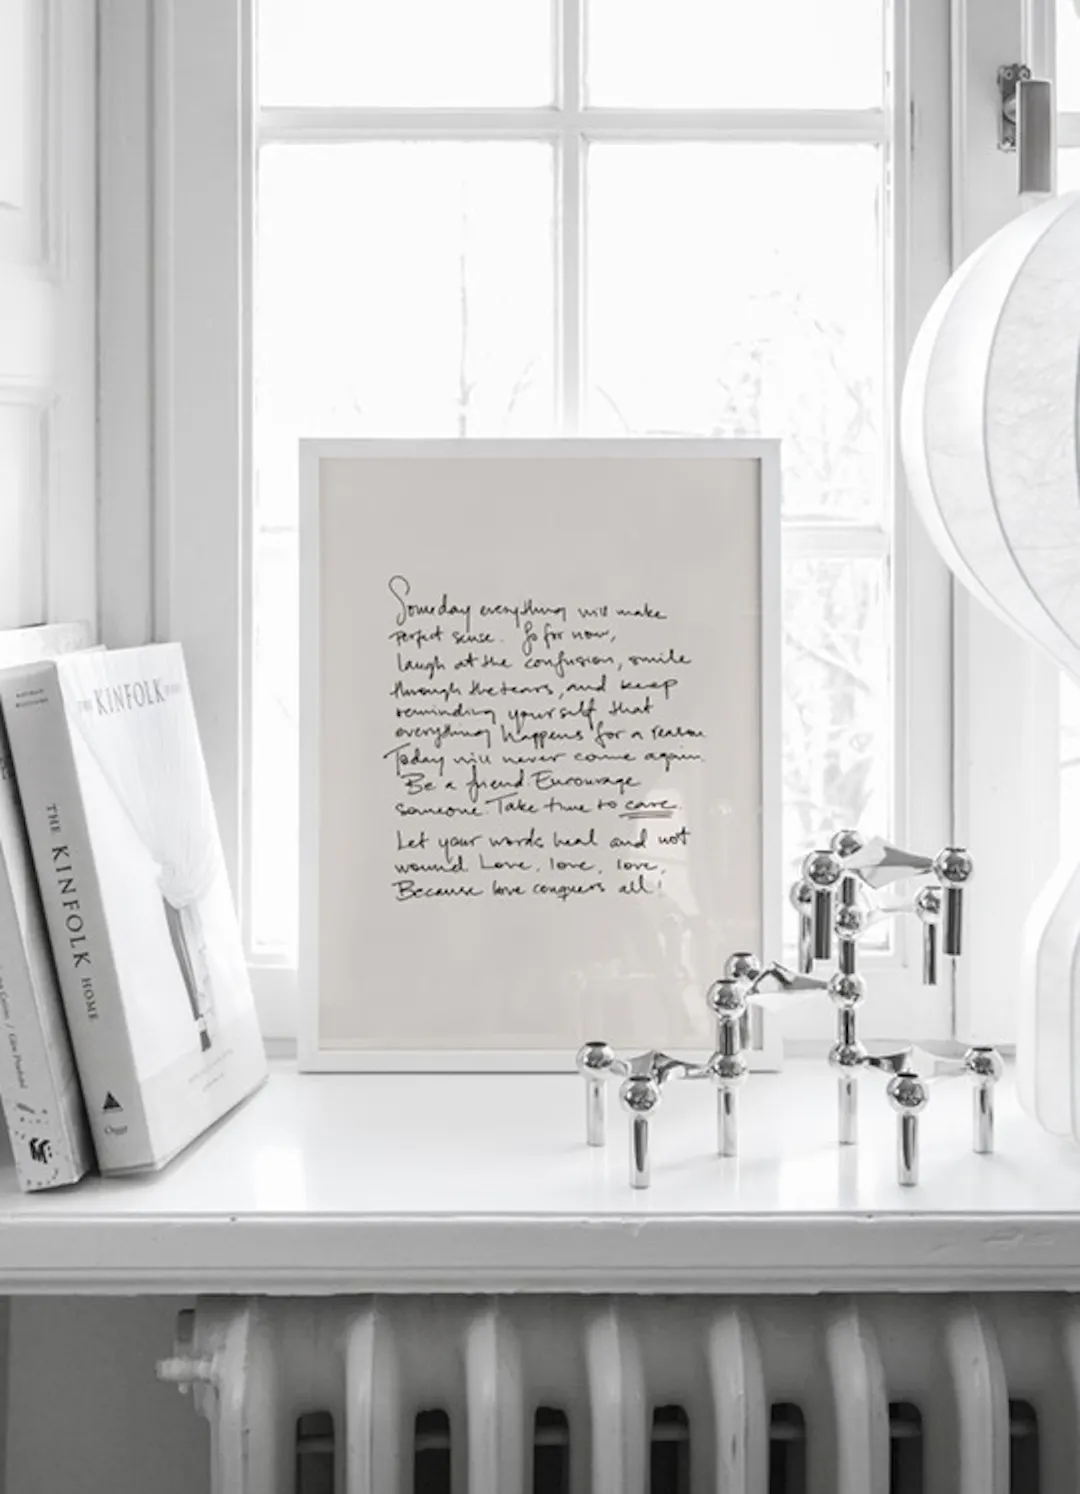 THE KINFOLK HOME
THE KINFOLK HOME
Someday everything will make
perfect sense. So for now,
laugh at the confusion, smile
through the tears, and keep
reminding yourself that
everything happens for a reason
Today will never come again.
Be a friend. Encourage
someone. Take time to care.
Let your words heal and not
wound. Love, love, love,
Because love conquers all!